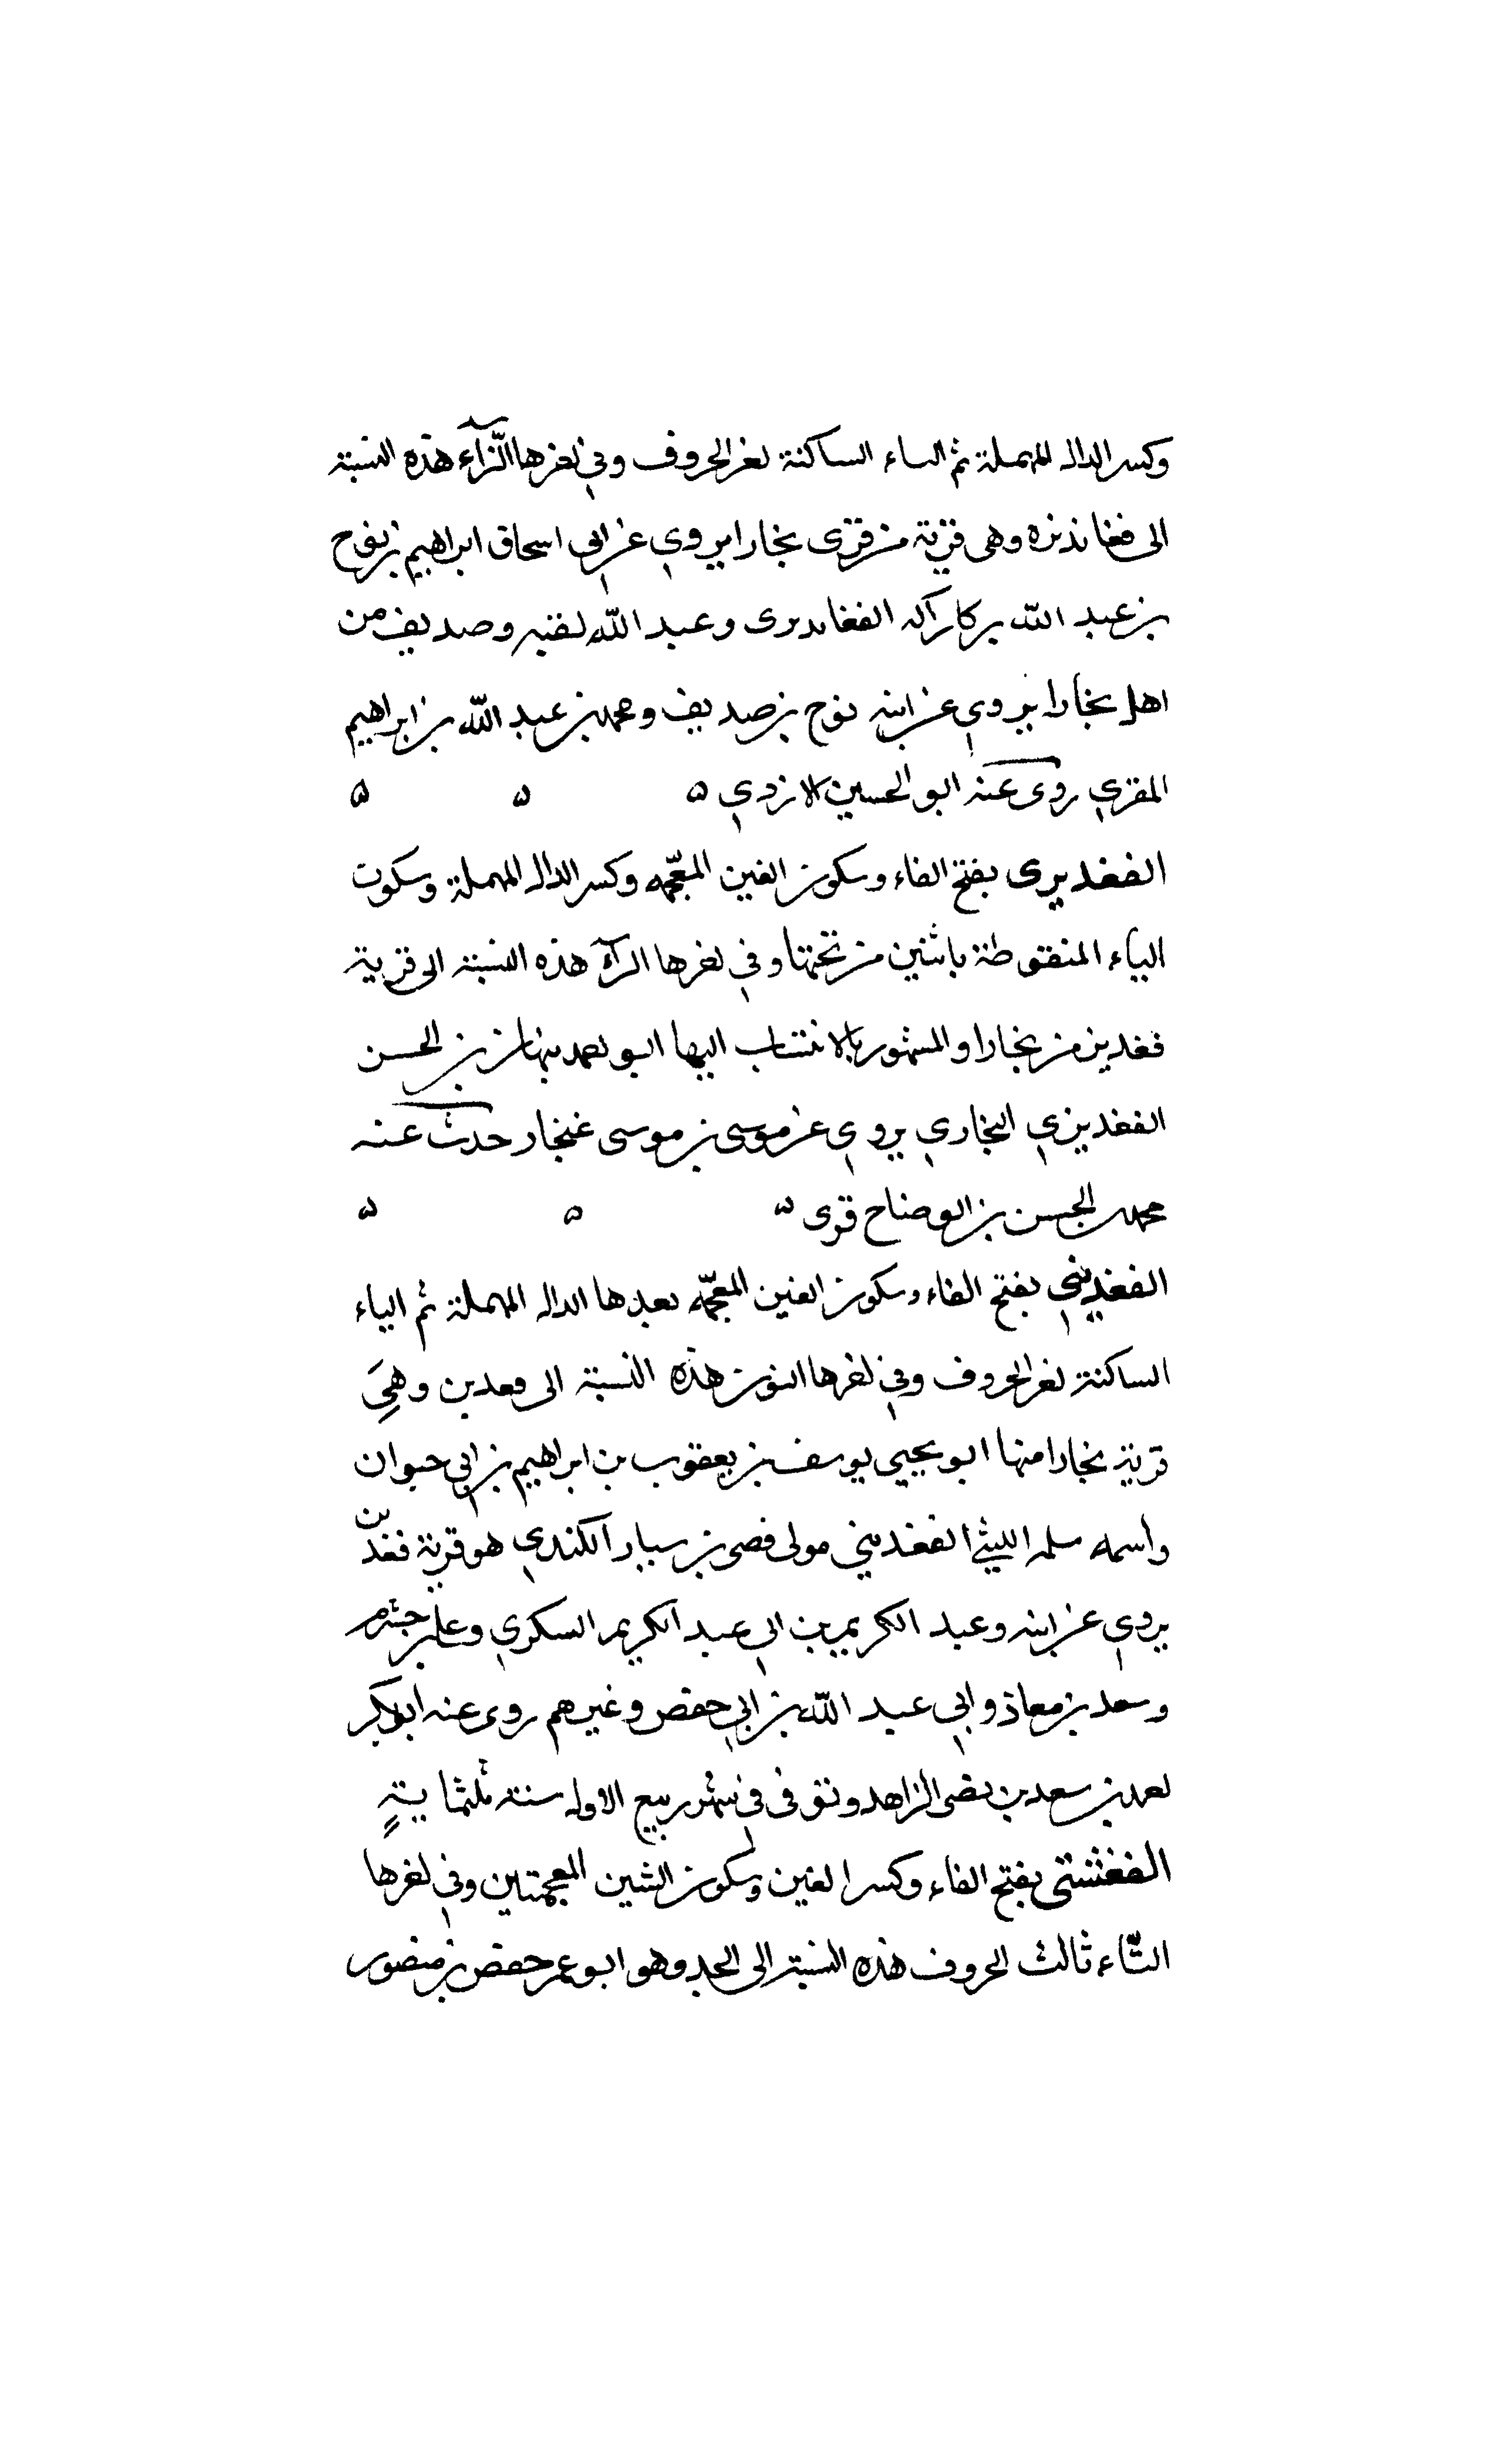 وكسر الدال المهملة ثم الياء الساكنة اخر الحروف وفي اخرها الزاء هذه النسبة
الى فغانديزه وهى قرية من قرى بخارا يروي عن ابي اسحاق ابراهيم بن نوح
بن عبد الله الفغاندیزى وعبد الله لقبه وصديف من
اهل بخارا يروي عن ابنه نوح بن صديف ومحمد بن عبد الله بن ابراهيم
المقري روى عنه ابو الحسين الازدي ه ه ه
الفغديرى بفتح الفاء وسكون الغين المعجمه وكسر الدال المهملة وسكون
الياء المنقوطة باثنين من تحتها وفي اخرها الرآء هذه النسبة الى قرية
فغديز من بخارا والمشهور بالانتساب اليها ابو بن الحسن
الفغديزي البخاري يروي عن موسى بن موسى غنجار حدث عنه
محمد بن الحسن بن الوضاح قرى ه ه ه
الفغديني بفتح الفاء وسكون الغين المعجمه بعدها الدال المهملة ثم الياء
الساكنة اخر الحروف وفي اخرها النون هذه النسبة الى فغدين وهِيَ
قرية بخارا منها ابو يحيى يوسف بن يعقوب بن ابراهيم بن ابي حيوان
واسمه سلمه الليثي الفغديني مولى بن سيار الكندي هو قرية فغدين
يروي عن ابنه وعبد الكريم بن ابي عبد الكريم السكري وعلي بن خشرم
وسعد بن معاذ وابي عبد الله بن ابي حفص وغيرهم روى عنه ابو بكر
احمد بن سعد بن الزاهد وتوفى في شهر ربيع الاول سنة ثلثمايةٍ
الفغشتى بفتح الفاء وكسر الغين وسكون الشين المعجمتين وفي اخرها
التّاء ثالث الحروف هذه النسبة الى الجد وهو ابو عمر حفص بن منصور